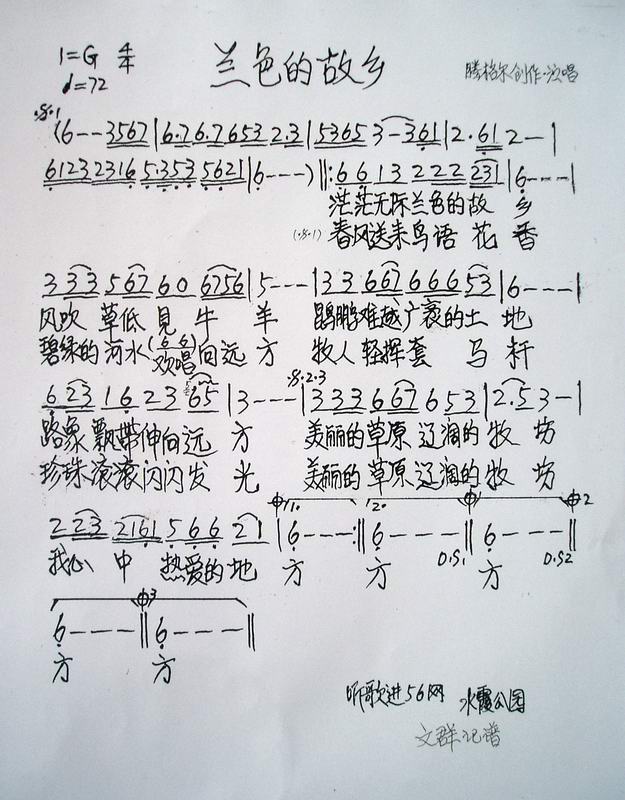 1=G 4/4 兰色的故乡 腾格尔创作·演唱
♩=72
·S·1
(6--3567|6·76·7653 2·3|5365 3-361|2·61 2-|
6123 2316 5·353 5621|6---)‖:66 13 222 231|6---|
茫茫无际兰色的故 乡
(·S·1) 春风送来鸟语 花 香
3 33 5 67 60 6756|5---|33 667 666 53|6---|
风吹 草低 見 牛 羊 鹍鹏难越广袤的土 地
碧绿的河水(66欢唱)向远 方 牧人 轻挥套 马 杆
·S·2·3
6 23 16 23 65|3---|333 667 653|2·53-|
路象 飘带伸向远 方 美丽的草原 辽阔的 牧 坊
珍珠滚滚闪闪发 光 美丽的草原 辽阔的 牧 坊
2 23 2161 566 21|6---:‖6---‖6---‖
1. 2. 1 2
我心 中 热爱的 地 方 方 D.S1 方 D.S2
3
6---‖6---‖
方 方
听歌进56网 水霞公园
文群记谱